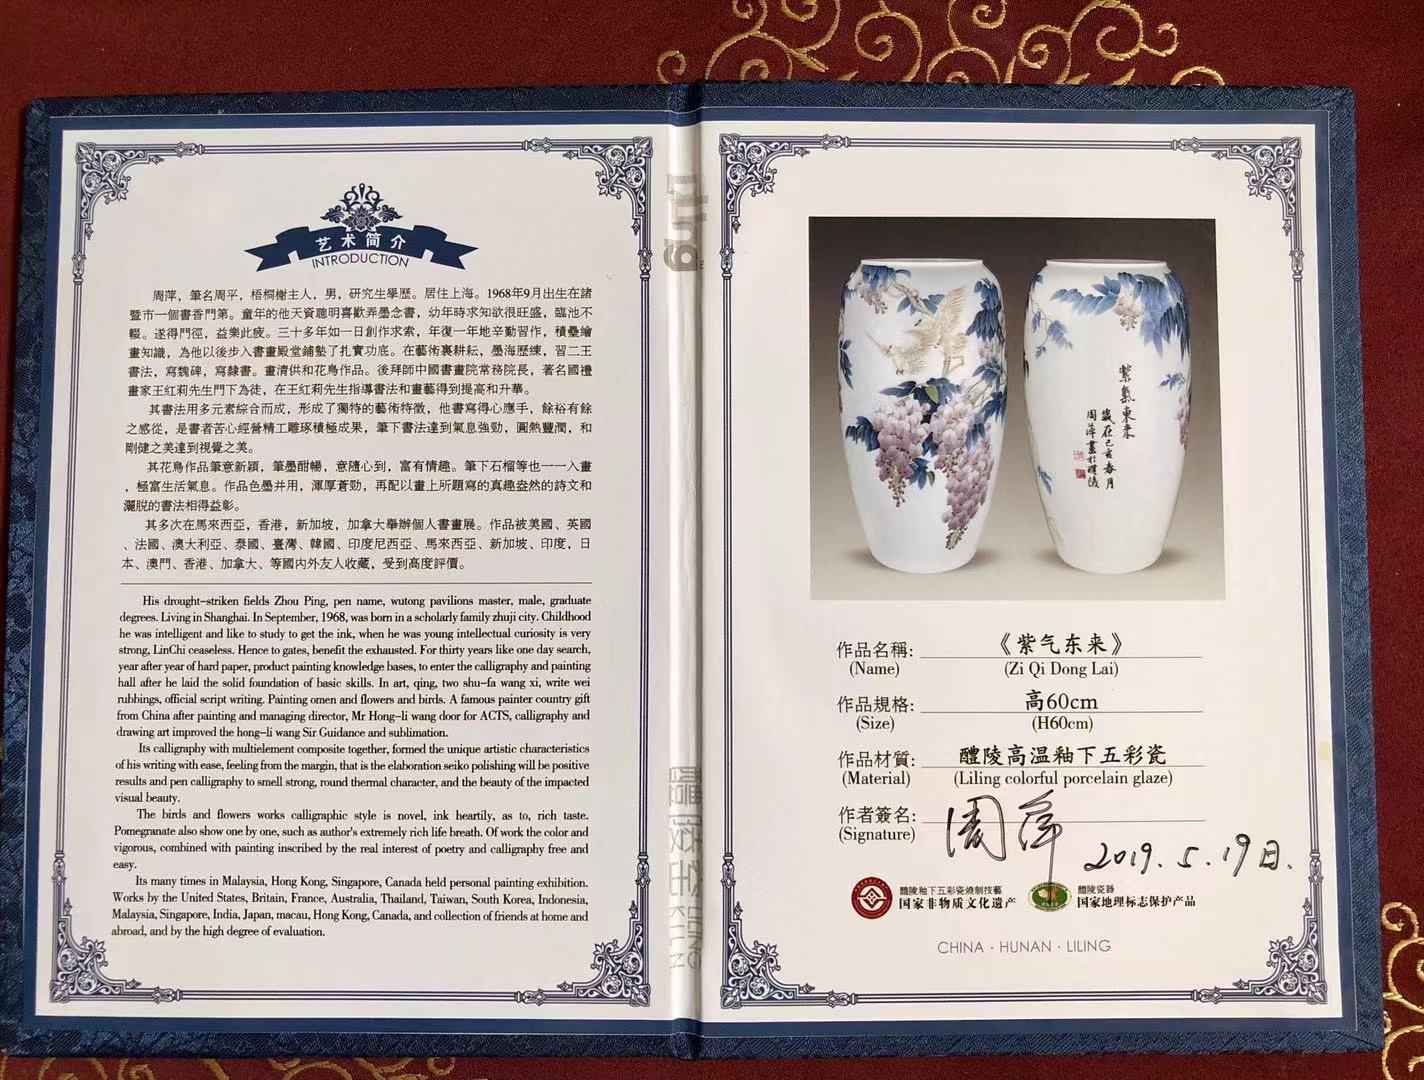 艺术简介
INTRODUCTION
周萍，筆名周平，梧桐榭主人，男，研究生學歷。居住上海。1968年9月出生在諸
暨市一個書香門第。童年的他天資聰明喜歡弄墨念書，幼年時求知欲很旺盛，臨池不
輟。遂得門徑，益樂此疲。三十多年如一日創作求索，年復一年地辛勤習作，積壘繪
畫知識，為他以後步入書畫殿堂鋪墊了扎實功底。在藝術裏耕耘，墨海歷練，習二王
書法，寫魏碑，寫隸書。畫清供和花鳥作品。後拜師中國書畫院常務院長，著名國禮
畫家王红莉先生門下為徒，在王红莉先生指導書法和畫藝得到提高和升華。
其書法用多元素綜合而成，形成了獨特的藝術特徵，他書寫得心應手，餘裕有餘
之感從，是書者苦心經營精工雕琢積極成果，筆下書法達到氣息強勁，圓熱豐潤，和
剛健之美達到視覺之美。
其花鳥作品筆意新穎，筆墨酣暢，意隨心到，富有情趣。筆下石榴等也一一入畫
，極富生活氣息。作品色墨并用，渾厚蒼勁，再配以畫上所題寫的真趣盎然的詩文和
灑脫的書法相得益彰。
其多次在馬來西亞，香港，新加坡，加拿大舉辦個人書畫展。作品被美國、英國
、法國、澳大利亞、泰國、臺灣、韓國、印度尼西亞、馬來西亞、新加坡、印度，日
本、澳門、香港、加拿大、等國内外友人收藏，受到高度評價。
His drought-striken fields Zhou Ping, pen name, wutong pavilions master, male, graduate
degrees. Living in Shanghai. In September, 1968, was born in a scholarly family zhuji city. Childhood
he was intelligent and like to study to get the ink, when he was young intellectual curiosity is very
strong, LinChi ceaseless. Hence to gates, benefit the exhausted. For thirty years like one day search,
year after year of hard paper, product painting knowledge bases, to enter the calligraphy and painting
hall after he laid the solid foundation of basic skills. In art, qing, two shu-fa wang xi, write wei
rubbings, official script writing. Painting omen and flowers and birds. A famous painter country gift
from China after painting and managing director, Mr Hong-li wang door for ACTS, calligraphy and
drawing art improved the hong-li wang Sir Guidance and sublimation.
Its calligraphy with multielement composite together, formed the unique artistic characteristics
of his writing with ease, feeling from the margin, that is the elaboration seiko polishing will be positive
results and pen calligraphy to smell strong, round thermal character, and the beauty of the impacted
visual beauty.
The birds and flowers works calligraphic style is novel, ink heartily, as to, rich taste.
Pomegranate also show one by one, such as author's extremely rich life breath. Of work the color and
vigorous, combined with painting inscribed by the real interest of poetry and calligraphy free and
easy.
Its many times in Malaysia, Hong Kong, Singapore, Canada held personal painting exhibition.
Works by the United States, Britain, France, Australia, Thailand, Taiwan, South Korea, Indonesia,
Malaysia, Singapore, India, Japan, macau, Hong Kong, Canada, and collection of friends at home and
abroad, and by the high degree of evaluation.
紫氣東來
歲在己亥春月
周萍畫於醴陵
作品名稱: 《紫气东来》
(Name) (Zi Qi Dong Lai)
作品規格: 高60cm
(Size) (H60cm)
作品材質: 醴陵高温釉下五彩瓷
(Material) (Liling colorful porcelain glaze)
作者簽名: 周萍
(Signature) 2019.5.19日.
醴陵釉下五彩瓷燒制技藝
国家非物质文化遗产
醴陵瓷器
国家地理标志保护产品
CHINA · HUNAN · LILING